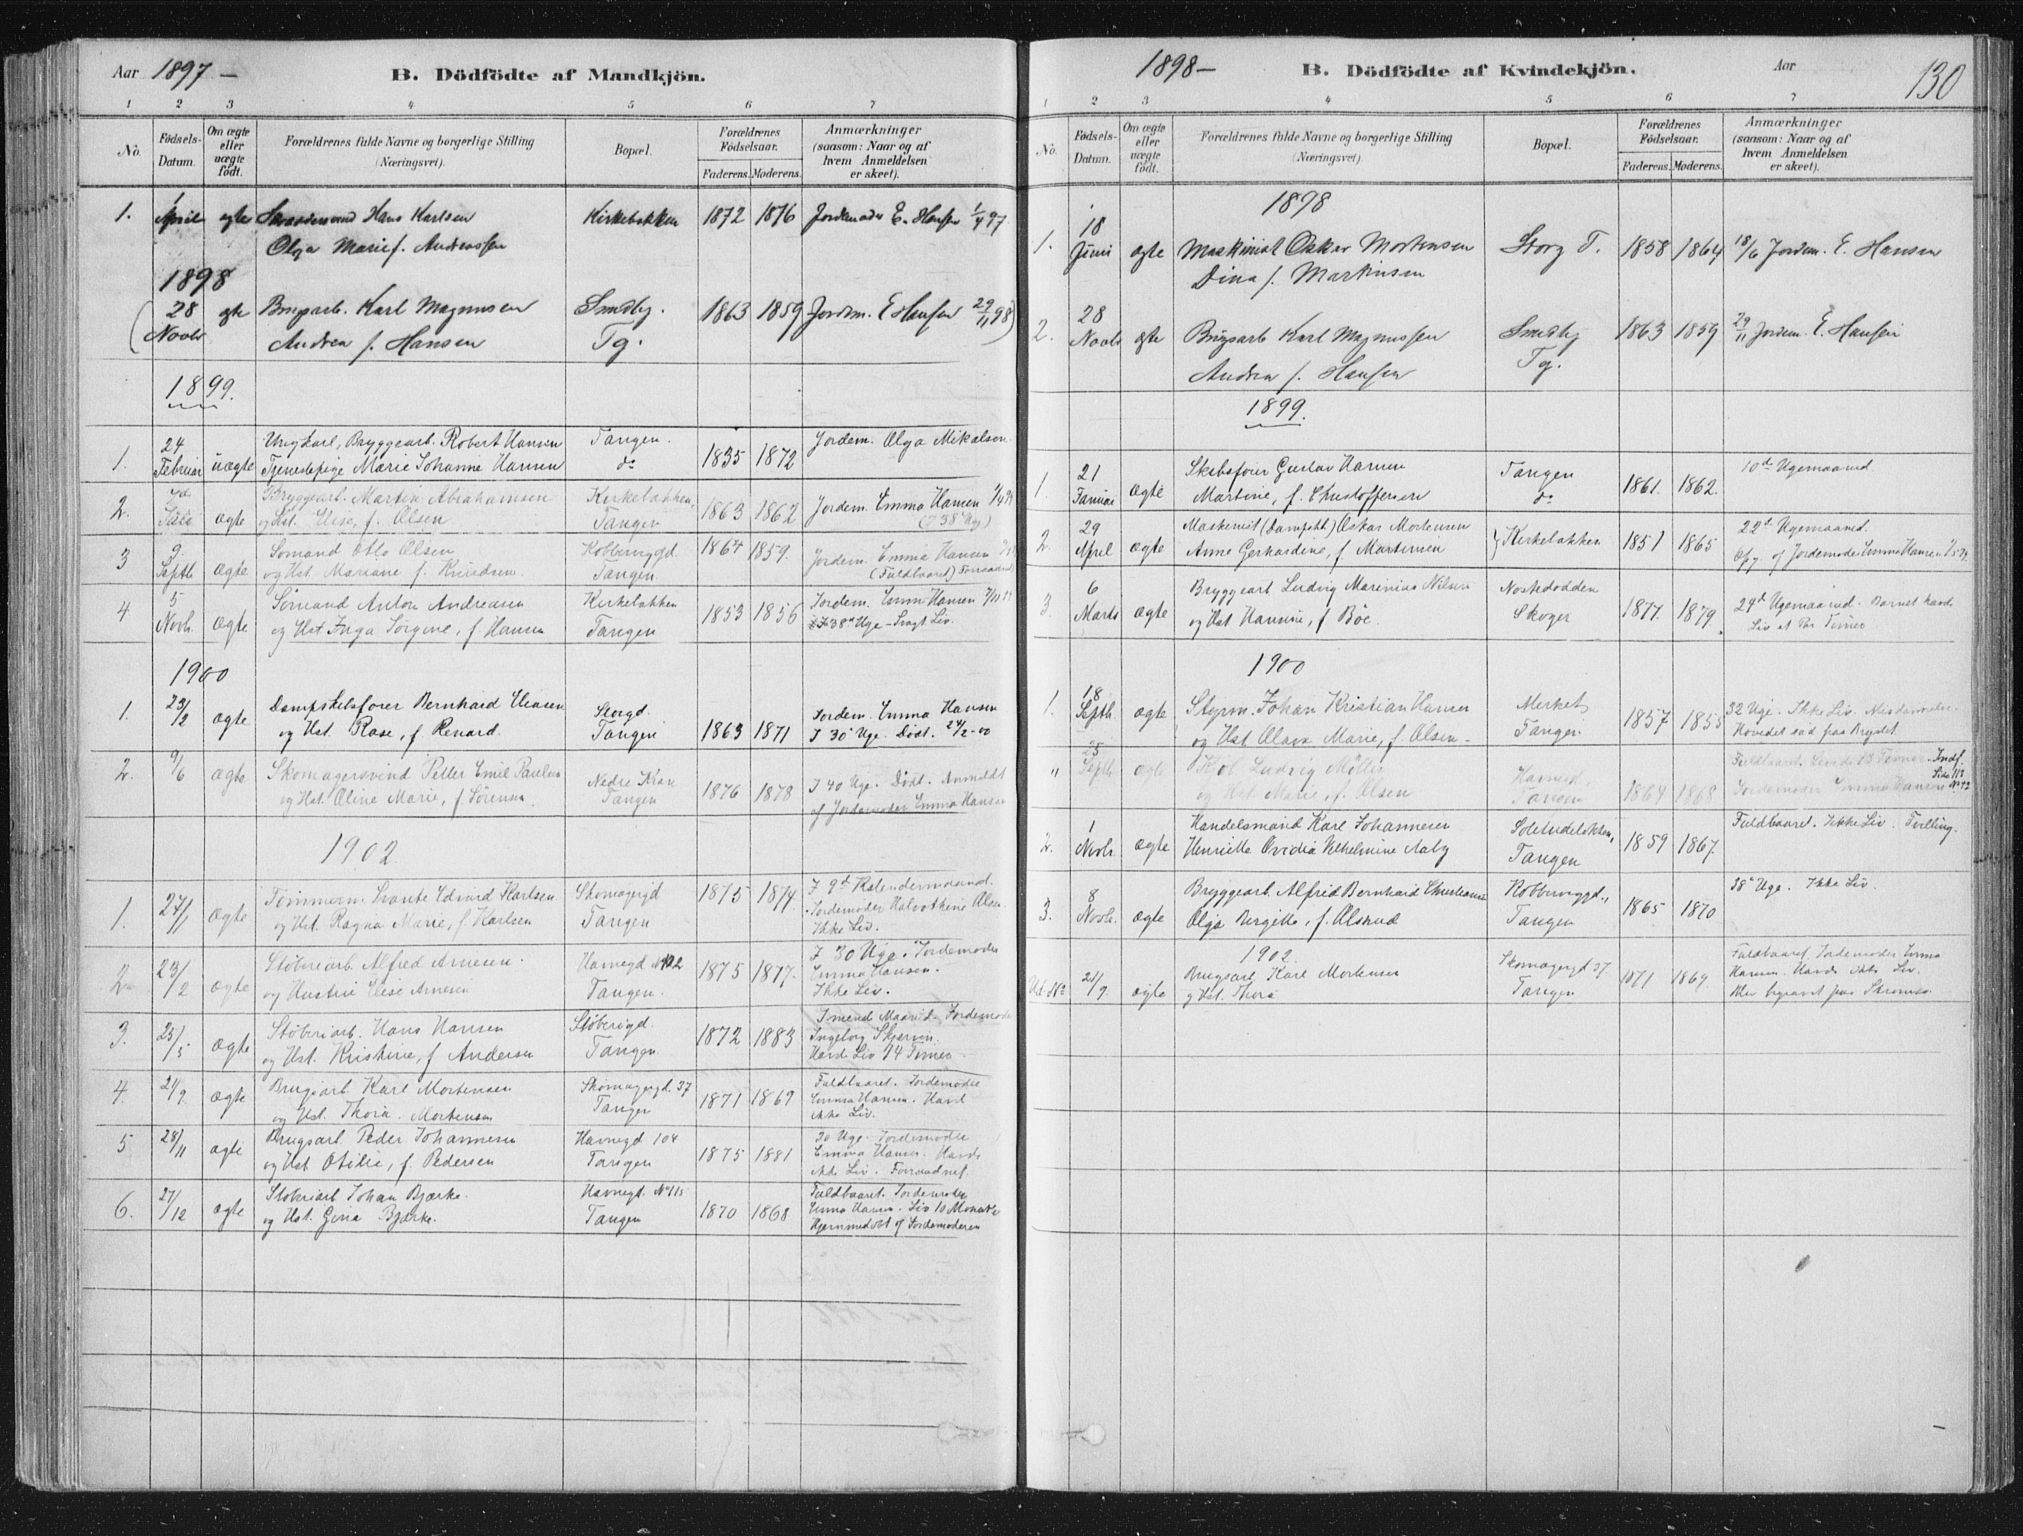 Aar 1897 –
B. Dödfödte af Mandkjön.
1 2 3 4 5 6 7
No.
Födsels-Datum.
Om ægte eller uægte födt.
Forældrenes fulde Navne og borgerlige Stilling (Næringsvei).
Bopæl.
Forældrenes Födselsaar.
Faderens. Moderens.
Anmærkninger (saasom: Naar og af hvem Anmeldelsen er skeet).
1. 1 April ægte Hans Karlsen Kirkebakken 1872 1876 Jordemoder E. Hansen 1/4 97
Olga Marie f. Andreassen
1898
(28 Novbr ægte Brugsarb. Karl Magnussen Smedby. 1863 1859 Jordem. E Hansen 29/11 98)
Andrea f. Hansen Tg.
1899.
1. 24 Februar uægte Ungkarl, Bryggearb. Robert Hansen Tangen. 1835 1872 Jordem. Olga Mikalsen.
Tjenestepige Marie Johanne Hansen do
2. ægte Bryggearb. Martin Abrahamsen Kirkebakken, 1863 1862 Jordem. Emma Hansen
og Hst. Elise, f. Olsen Tangen (I 38 Uge)
3 9 Septb ægte Sömand Otto Olsen Kobbervigd 1864 1859. Jordem. Emma Hansen
og Hst. Mariane f. Knudsen. Tangen. (Fuldbaaret)
4 5 Novb. ægte Sömand Anton Andreasen Kirkebakken 1853 1856 Jordem. Emma Hansen
og Hst Inga Jörgine, f. Hansen Tangen I 38 Uge – Svagt Liv.
1900
1. 23/2 ægte Dampskibsförer Bernhard Eliasen Storgd. 1863 1871 Jordem. Emma Hansen
og Hst. Rose, f Renard. Tangen I 30 Uge. Dödt. 24/2-00
2. 9/6 ægte Skomagersvend Petter Emil Paulsen Nedre Kran 1876 1878 I 40 Uge. Dödt. Anmeldt
og Hst. Oline Marie, f. Sörensen. Tangen af Jordemoder Emma Hansen
1902.
1. 27/1 ægte Tömmerm. Svante Edvard Karlsen Skomagergd 1875 1874. I 9d Kalendermaaned.
og Hst. Ragna Marie, f. Karlsen Tangen Jordemoder Olsen
Ikke Liv.
2. 23/2 ægte Støberiarb. Alfred Arnesen. Havnegd 1875 1877. I 30 Uge. Jordemoder
og Hustru Elise Arnesen Tangen. Emma Hansen.
Ikke Liv.
3. 25/5 ægte Støberiarb. Hans Hansen Støberigd. 1872 1883 Maaned. Jordemoder
og Hst. Kristine, f Andersen Tangen Ingeborg
Havde Liv 14 Timer
4. 21/9. ægte Brugsarb. Karl Mortensen Skomagergd. 37 1871 1869 Fuldbaaret. Jordemoder
og Hst. Thora Mortensen Tangen Emma Hansen. Havd
ikke Liv.
5 28/11 ægte Brugsarb Peder Johannesen Havnegd 104 1875 1881 30 Uge. Jordemoder
og Hst Otilie, f. Pedersen Tangen Emma Hansen. Havde
ikke Liv.
6. 27/12 ægte Støberiarb Johan Bjærke. Havnegd. No 115 1870 1868 Fuldbaaret. Jordemoder
og Hst. Gina Bjærke. Tangen Emma Hansen. Liv 10
Hjemmedöbt af Jordemoderen
1898 –
B. Dödfödte af Kvindekjön.
Aar
130
1 2 3 4 5 6 7
No.
Födsels-Datum.
Om ægte eller uægte födt.
Forældrenes fulde Navne og borgerlige Stilling (Næringsvei).
Bopæl.
Forældrenes Födselsaar.
Faderens. Moderens.
Anmærkninger (saasom: Naar og af hvem Anmeldelsen er skeet).
1898
1. 18 Juni ægte Maskinist Oskar Mortensen Storg T. 1858 1864 18/6 Jordem. E. Hansen
Dina f. Martinsen
2. 28 Novbr ægte Brugsarb Karl Magnussen Smedby 1863 1859 29/11 Jordem. E. Hansen
Andrea f. Hansen Tg.
1899.
1. 21 Januar ægte Skibsförer Gustav Hansen Tangen 1861. 1862. 10de Ugemaaned
Martine, f. Christoffersen do
2. 29 April ægte Maskinist (Dampskb) Oskar Mortensen } Kirkebakken 1851 1865 22de Ugemaaned.
Anne Gerhardine, f Martinsen Opg. af Jordemoder Emma Hansen
3 6 Marts ægte Bryggearb Ludvig Marinius Nilsen Nöstedodden 1877. 1879. 29de Ugemaaned. Barnet havde
og Hst Hansine, f Böe. Skoger Liv et Par Timer
1900
1. 18 Septb. ægte Styrm. Johan Kristian Hansen Merket 1857 1855 32 Uge. Ikke Liv.
og Hst Olava Marie, f. Olsen – Tangen Hovedet sad paa Brystet
" 25 Septb ægte Ludvig Möller Havnegd. 1864 1868 Fuldbaaret. Levede 13 Timer. Indf. Side 113
og Hst. Marie, f. Olsen Tangen Jordemoder Emma Hansen No 42
2. 1 Novb. ægte Handelsmand Karl Johannesen 1859 1867. Fuldbaaret. Ikke Liv. Tvilling.
Henriette Ovidia Vilhelmine Aaby Tangen
3. 8 Novb. ægte Bryggearb Alfred Bernhard Christiansen Kobbervigd., 1865 1870 38 Uge. Ikke Liv.
Olga Birgitte, f. Olsrud Tangen
1902.
21/9. ægte Brugsarb Karl Mortensen Skomagergd 37. 1871 1869. Fuldbaaret. Jordemoder Emma
og Hst. Thora Tangen Hansen. Havde ikke Liv.
Blev begravet paa